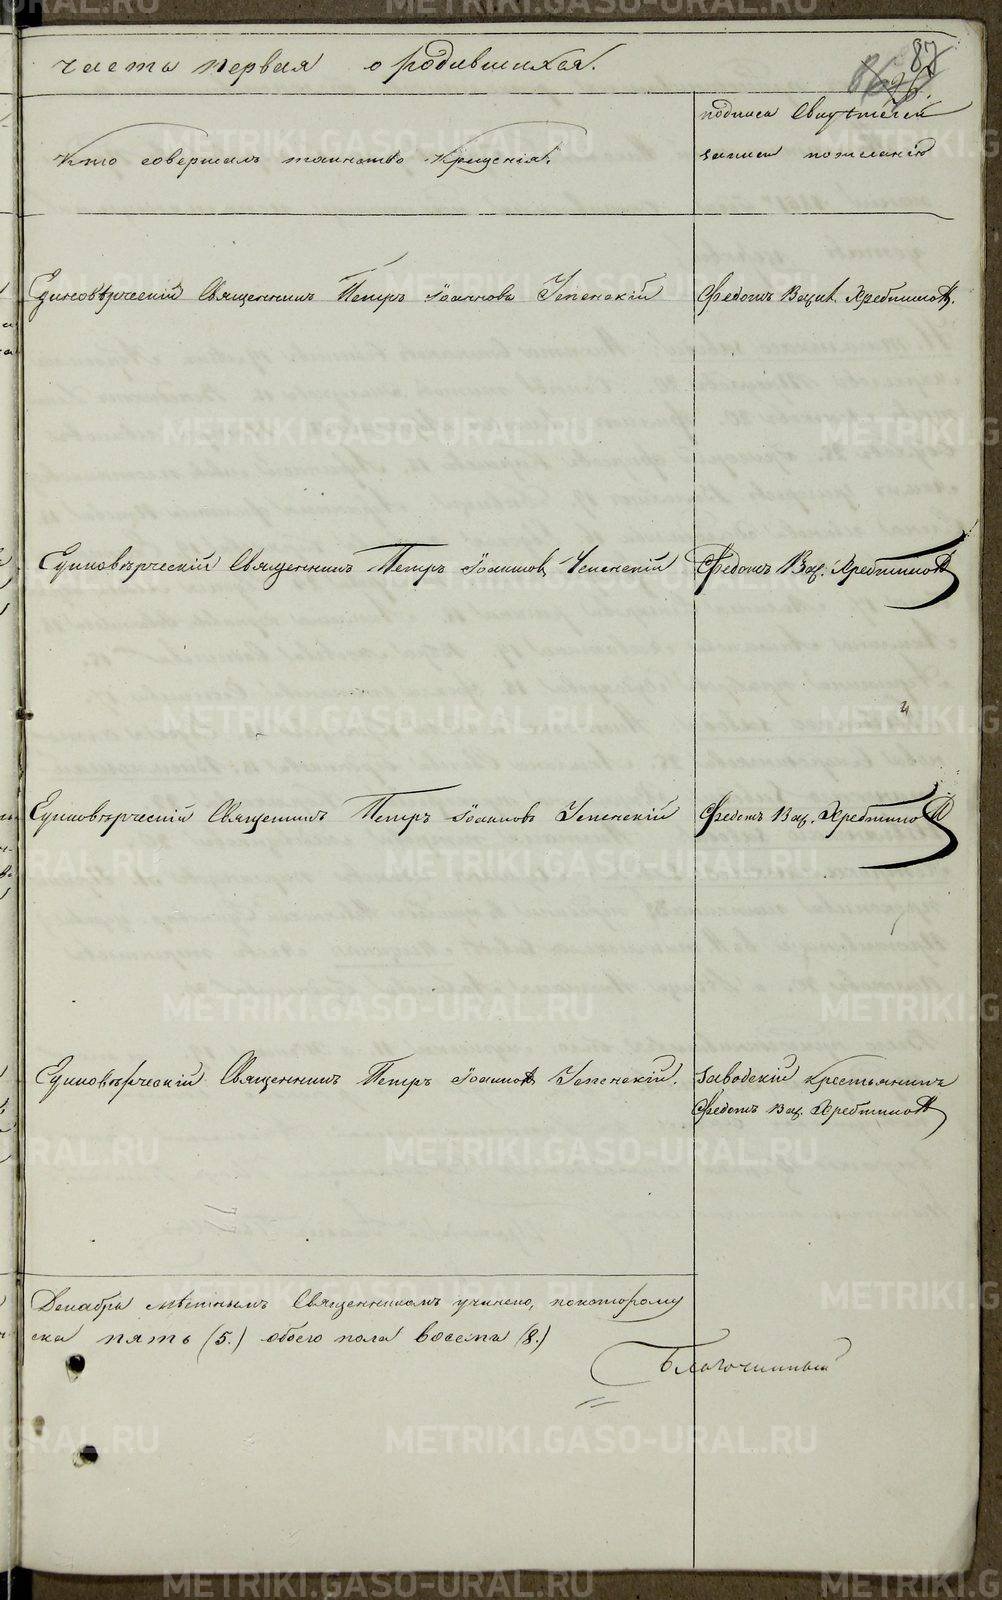 87
часть первая о родившихся.
Кто совершалъ таинство крещенія.
подписи Свидѣтелей
записи по желанію
Единовѣрческій Священникъ Петръ Іоанновъ Успенскій
Федотъ Вас. Хребтиковъ.
Единовѣрческій Священникъ Петръ Іоанновъ Успенскій
Федотъ Вас. Хребтиковъ
Единовѣрческій Священникъ Петръ Іоанновъ Успенскій
Федотъ Вас. Хребтиковъ
Единовѣрческій Священникъ Петръ Іоанновъ Успенскій.
заводскій крестьянинъ
Федотъ Вас. Хребтиковъ
Декабрь мѣстнымъ Священникомъ учинено, по которому
ска пять (5.) обоего пола восемь (8.)
Благочинный
METRIKI.GASO-URAL.RU